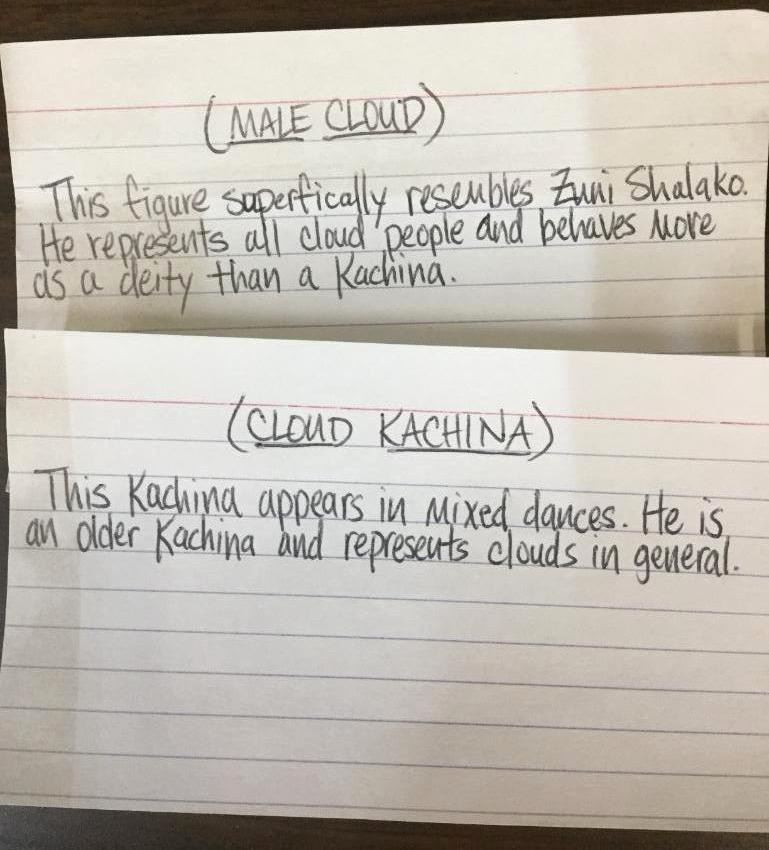 (MALE CLOUD)
This figure superfically resembles Zuni Shalako.
He represents all cloud people and behaves More
as a deity than a Kachina.
(CLOUD KACHINA)
This Kachina appears in Mixed dances. He is
an older Kachina and represents clouds in general.